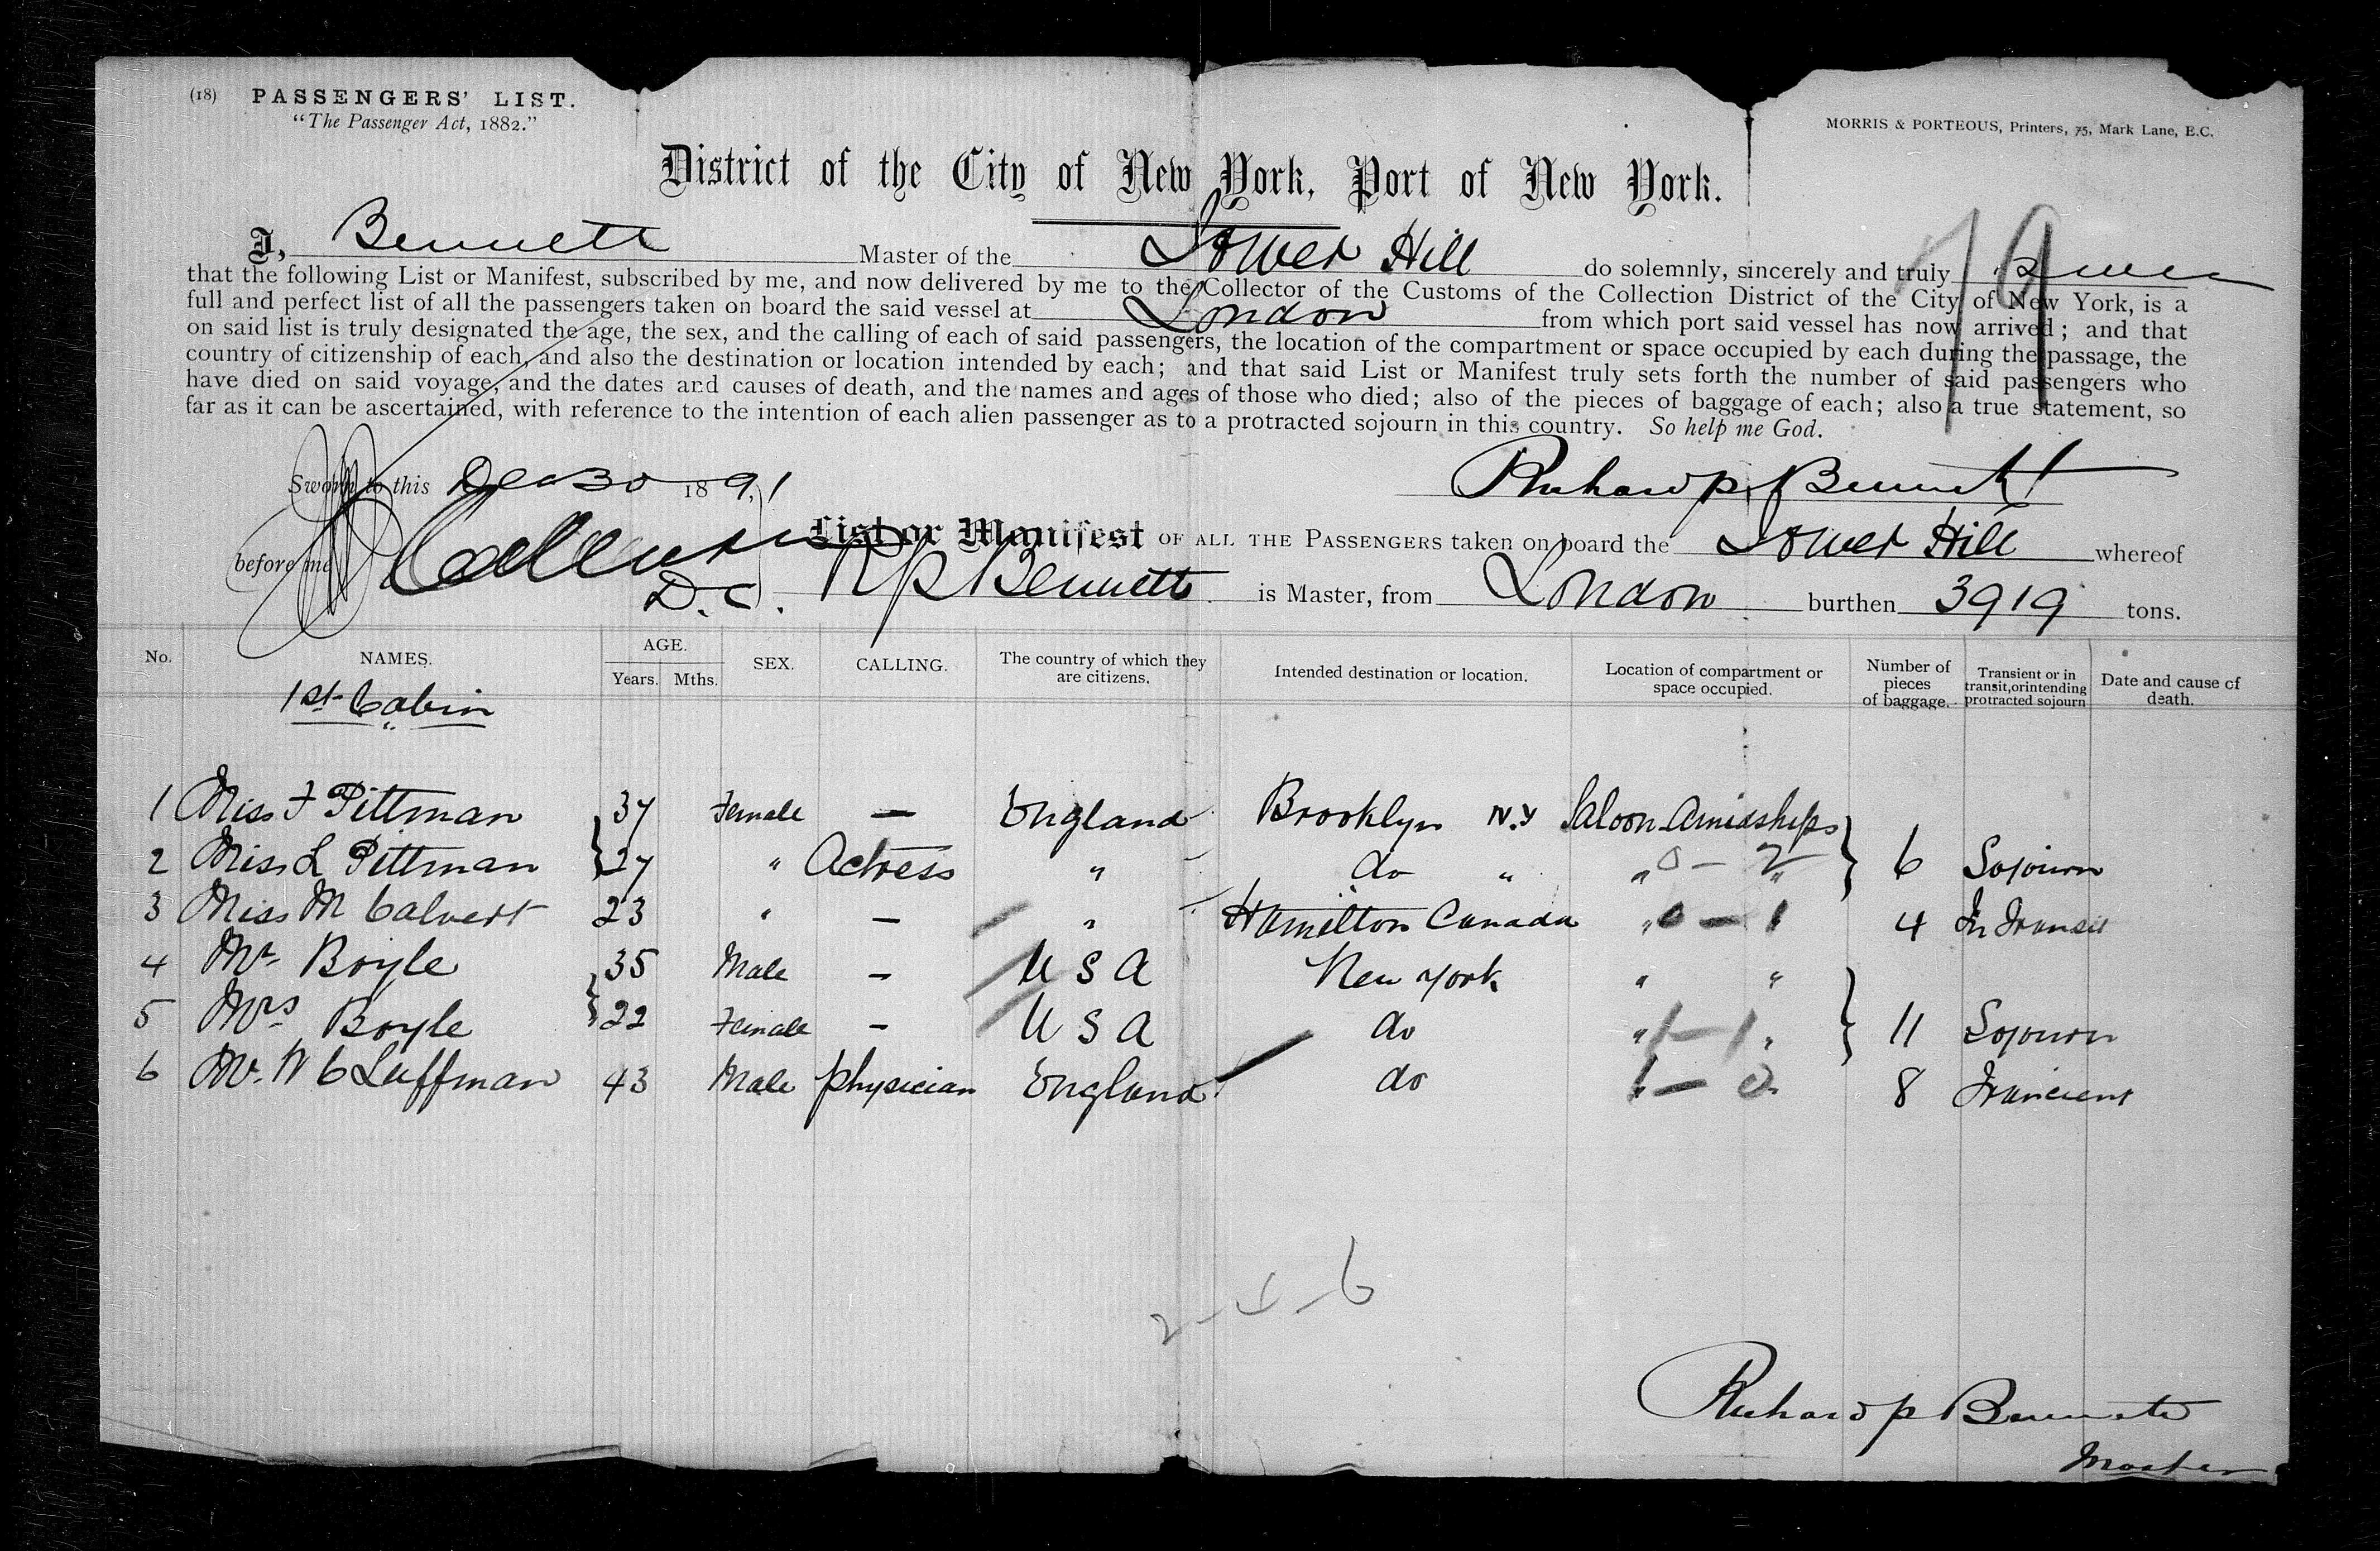 (18) PASSENGERS' LIST.
"The Passenger Act, 1882."
MORRIS & PORTEOUS, Printers, 75, Mark Lane, E.C.
District of the City of New York, Port of New York.
19
I, Bennett Master of the Tower Hill do solemnly, sincerely and truly swear
that the following List or Manifest, subscribed by me, and now delivered by me to the Collector of the Customs of the Collection District of the City of New York, is a
full and perfect list of all the passengers taken on board the said vessel at London from which port said vessel has now arrived; and that
on said list is truly designated the age, the sex, and the calling of each of said passengers, the location of the compartment or space occupied by each during the passage, the
country of citizenship of each, and also the destination or location intended by each; and that said List or Manifest truly sets forth the number of said passengers who
have died on said voyage, and the dates and causes of death, and the names and ages of those who died; also of the pieces of baggage of each; also a true statement, so
far as it can be ascertained, with reference to the intention of each alien passenger as to a protracted sojourn in this country. So help me God.
Sworn to this Dec 30 1891 Richard p Bennett
List or Manifest OF ALL THE PASSENGERS taken on board the Tower Hill whereof
before me D.C. R p Bennett is Master, from London burthen 3919 tons.
No. NAMES. AGE. Years. Mths. SEX. CALLING. The country of which they are citizens. Intended destination or location. Location of compartment or space occupied. Number of pieces of baggage. Transient or in transit, or intending protracted sojourn Date and cause of death.
1st Cabin
1 Miss F Pittman 37 Female — England Brooklyn N.Y Saloon Amidships
2 Miss L Pittman 27 " Actress " do " " 0 – 2 " 6 Sojourn
3 Miss M Calvert 23 " — " Hamilton Canada " 0 – 1 4 In Transit
4 Mr Boyle 35 Male — U S A New York " "
5 Mrs Boyle 22 Female — U S A do " 1 – 1 " 11 Sojourn
6 Mr. W C Luffman 43 Male physician England do " 1 – 0 8 Trancient
2 – 4 – 6
Richard p Bennett
Master